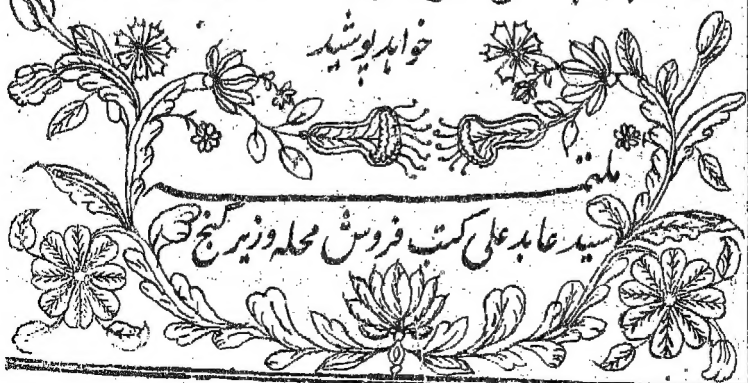 خواہد پوشید
ملتمس
سید عابد علی کتب فروش محلہ وزیر گنج